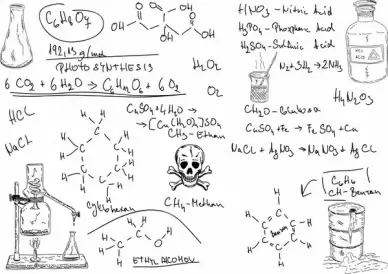 C6H8O7
192,13 g/mol
PHOTOSYNTHESIS
6 CO2 + 6 H2O → C6H12O6 + 6 O2
HCl
NaCl
H2O2
O2
CuSO4 + 4H2O →
→ [Cu(H2O)4]SO4
CH3 - Ethan
CH4 - Methan
Cyklohexan
ETHYL ALCOHOL
HNO3 - Nitric Acid
H3PO4 - Phosphoric Acid
H2SO4 - Sulfuric Acid
N2 + 3H2 → 2NH3
H2N2O3
CH2O - Celulosa
CuSO4 + Fe → FeSO4 + Cu
NaCl + AgNO3 → NaNO3 + AgCl
C6H6
CH - Benzen
ACID
H
C
O
OH
HO